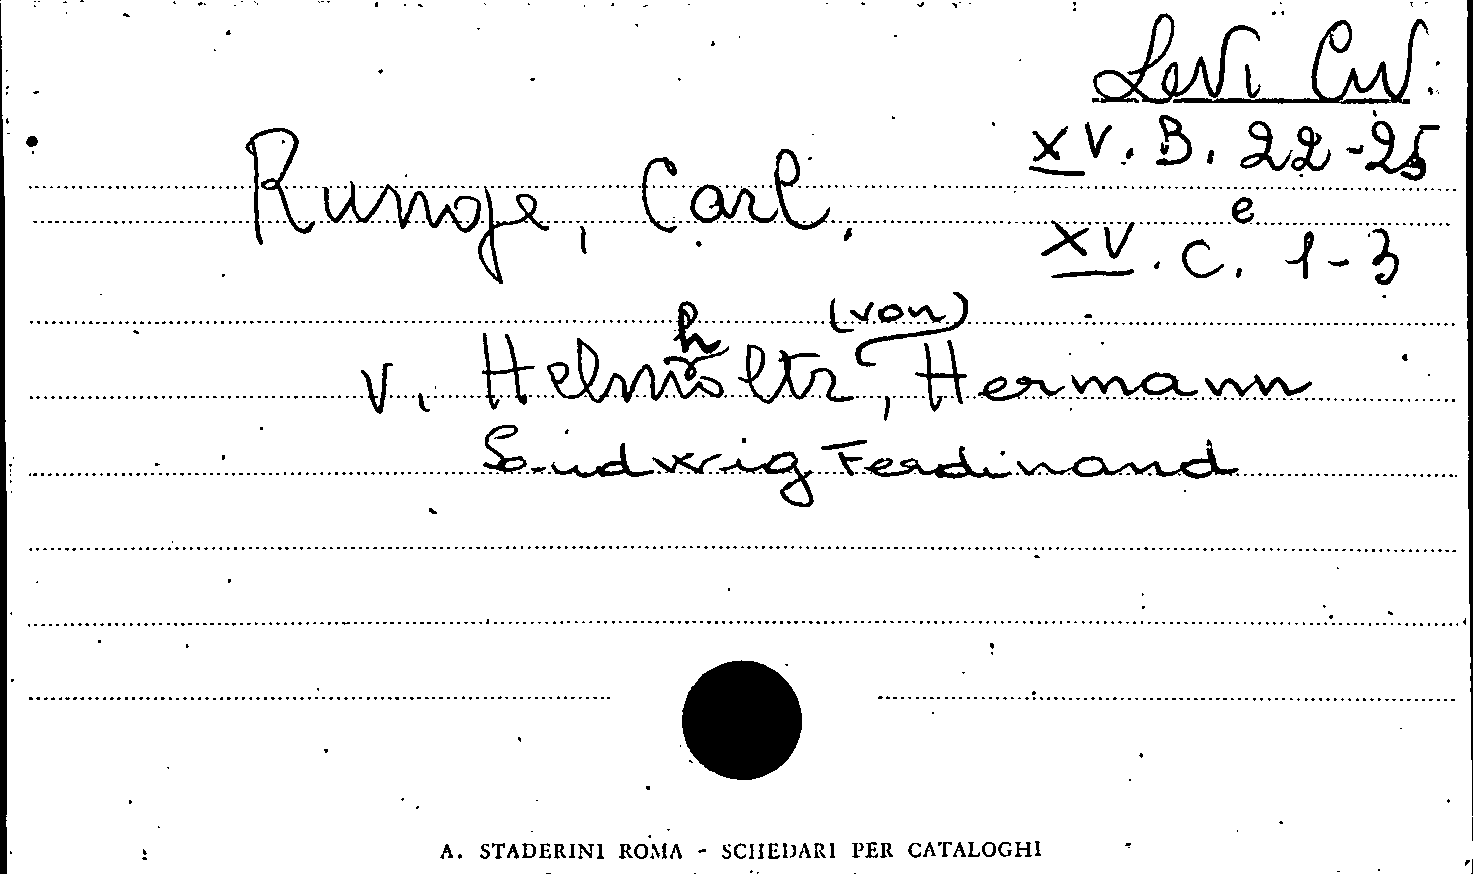 Levi Civ.
XV. B. 22-25
e
XV. C. 1-3
Runge, Carl.
v. Helmholtz (von), Hermann
Ludwig Ferdinand
A. STADERINI ROMA - SCHEDARI PER CATALOGHI